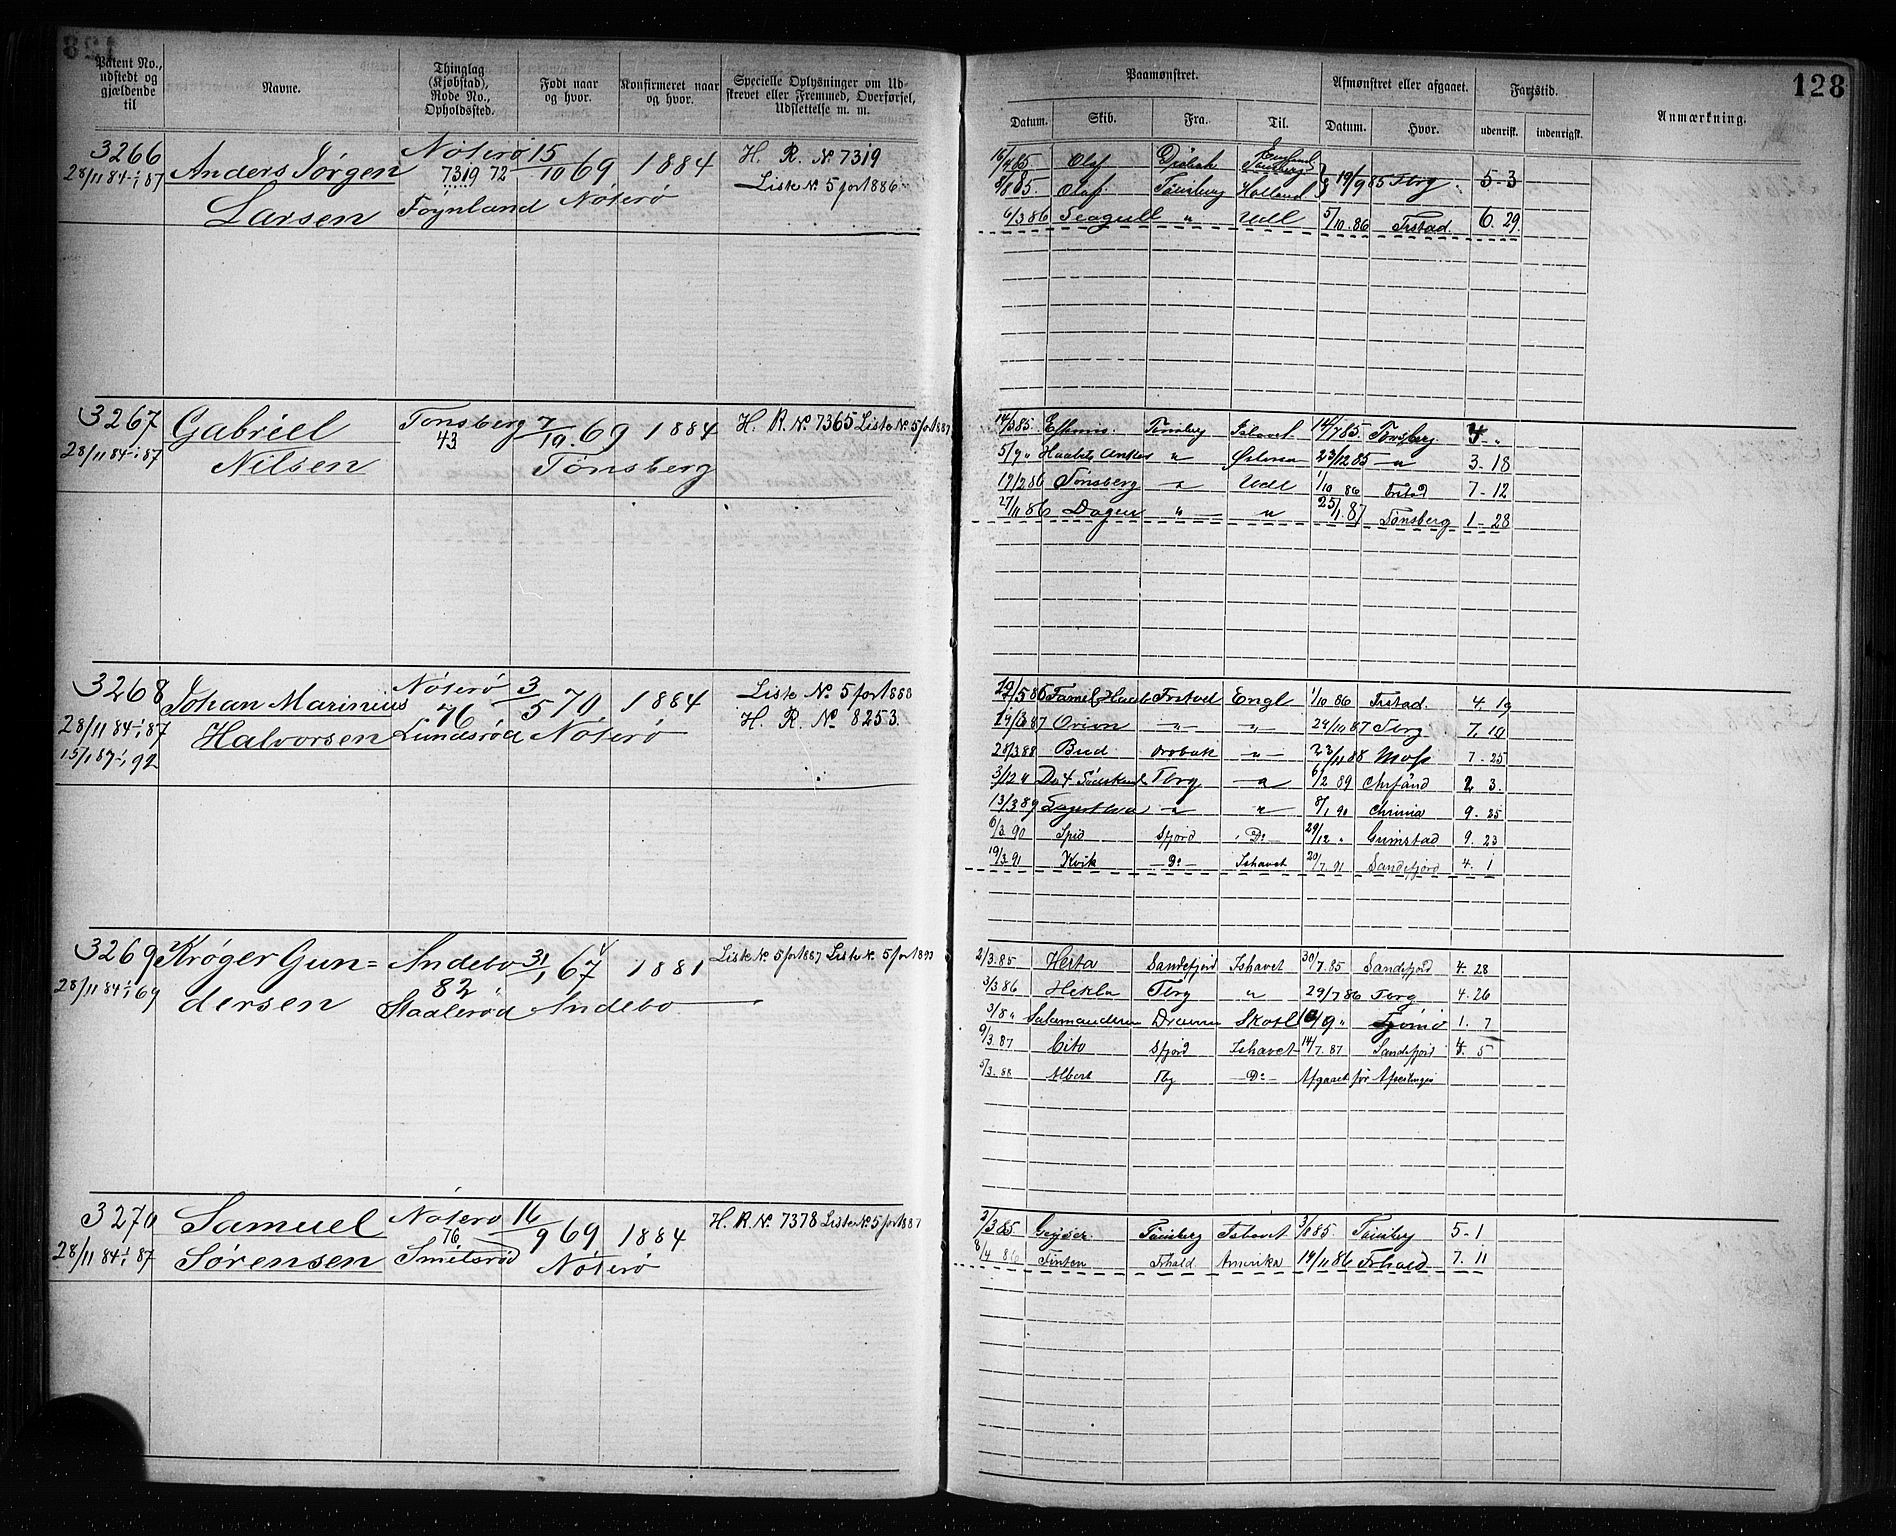 128
Patent No., udstedt og gjældende til
Navne.
Thinglag (Kjøbstad), Rode No., Opholdssted.
Født naar og hvor.
Konfirmeret naar og hvor.
Specielle Oplysninger om Udskrevet eller Fremmed, Overførsel, Udslettelse m. m.
3266 Anders Jørgen Nøterø 15/10 69 1884 H. R. № 7319
28/11 84-1/1 87 Larsen 7319 72 Nøterø Liste № 5 for 1886
Føynland
3267 Gabriel Tønsberg 7/10.69 1884 H. R. № 7365 Liste № 5 for 1887
28/11 84-1/1 87 Nilsen 43 Tønsberg
3268 Johan Marinius Nøterø 3/5 70 1884 Liste № 5 for 1888
28/11 84-1/1 87 Halvorsen 76 Lundsrød Nøterø H. R. № 8253.
15/1 87-1/1 92
3269 Krøger Gun= Andebo 31/1 67 1881 Liste № 5 for 1887 Liste №. 5 for
28/11 84-1/1 69 dersen 82 Staalerød Andebo
3270 Samuel Nøterø 16/9 69 1884 H. R. №. 7378 Liste № 5 for 1887
28/11 84-1/1 87 Sørensen 76 Smidsrød Nøterø
Paamønstret.
Afmønstret eller afgaaet.
Fartstid.
Anmærkning.
128
Datum. Skib. Fra. Til. Datum. Hvor. udenrigsk. indenrigsk.
Olaf Drøbak
Olaf Tønsberg Holland 19/9 85 Tbrg 5-3
6/3 86 Seagull " Udl 5/10.86 Frstad. 6.29
14/3 85 Tønsberg Ishavet 14/7 85 Tønsberg 4 "
5/9 " Haabets Anker " Østersø 23/12 85 " 3-18
17/2 86 Tønsberg " Udl 1/10 86 Frstad 7-12
27/11 86 Dagen " " 25/1 87 Tønsberg 1-28
Frstad Engl 1/10 86 Frstad. 4.19
Orion " " 24/10 87 Tbrg 7.10
28/3 88 Bud Drobak " 23/11 88 Moss 7-25
3/12 " Tbrg " 6/2 89 Chrsand 2 3.
13/3 89 " " 8/1 90 Chrinia 9.25
6/3.90 Spid Sfjord Do 29/12 " Grimstad 9.23
19/3.91 Kvik Do Ishavet 20/7.91 Sandefjord 4.1
2/3.85 Herta Sandefjord Ishavet 30/7.85 Sandefjord 4.28
3/3 86 Hekla Tbrg " 29/7 86 Tbrg 4.26
3/8 " Salamanderen Drammen Skotl /9 " Tjømø 1.7
9/3.87 Cito Sfjord Ishavet 14/7.87 Sandefjord 4.5
5/3.88 Albert Tbg Do Afgaaet før Afreisen
2/3 85 Geyser. Tønsberg Ishavet 3/8 85 Tønsberg 5-1
8/4 86 Frhald Amerika 19/11 86 Frhald 7.11